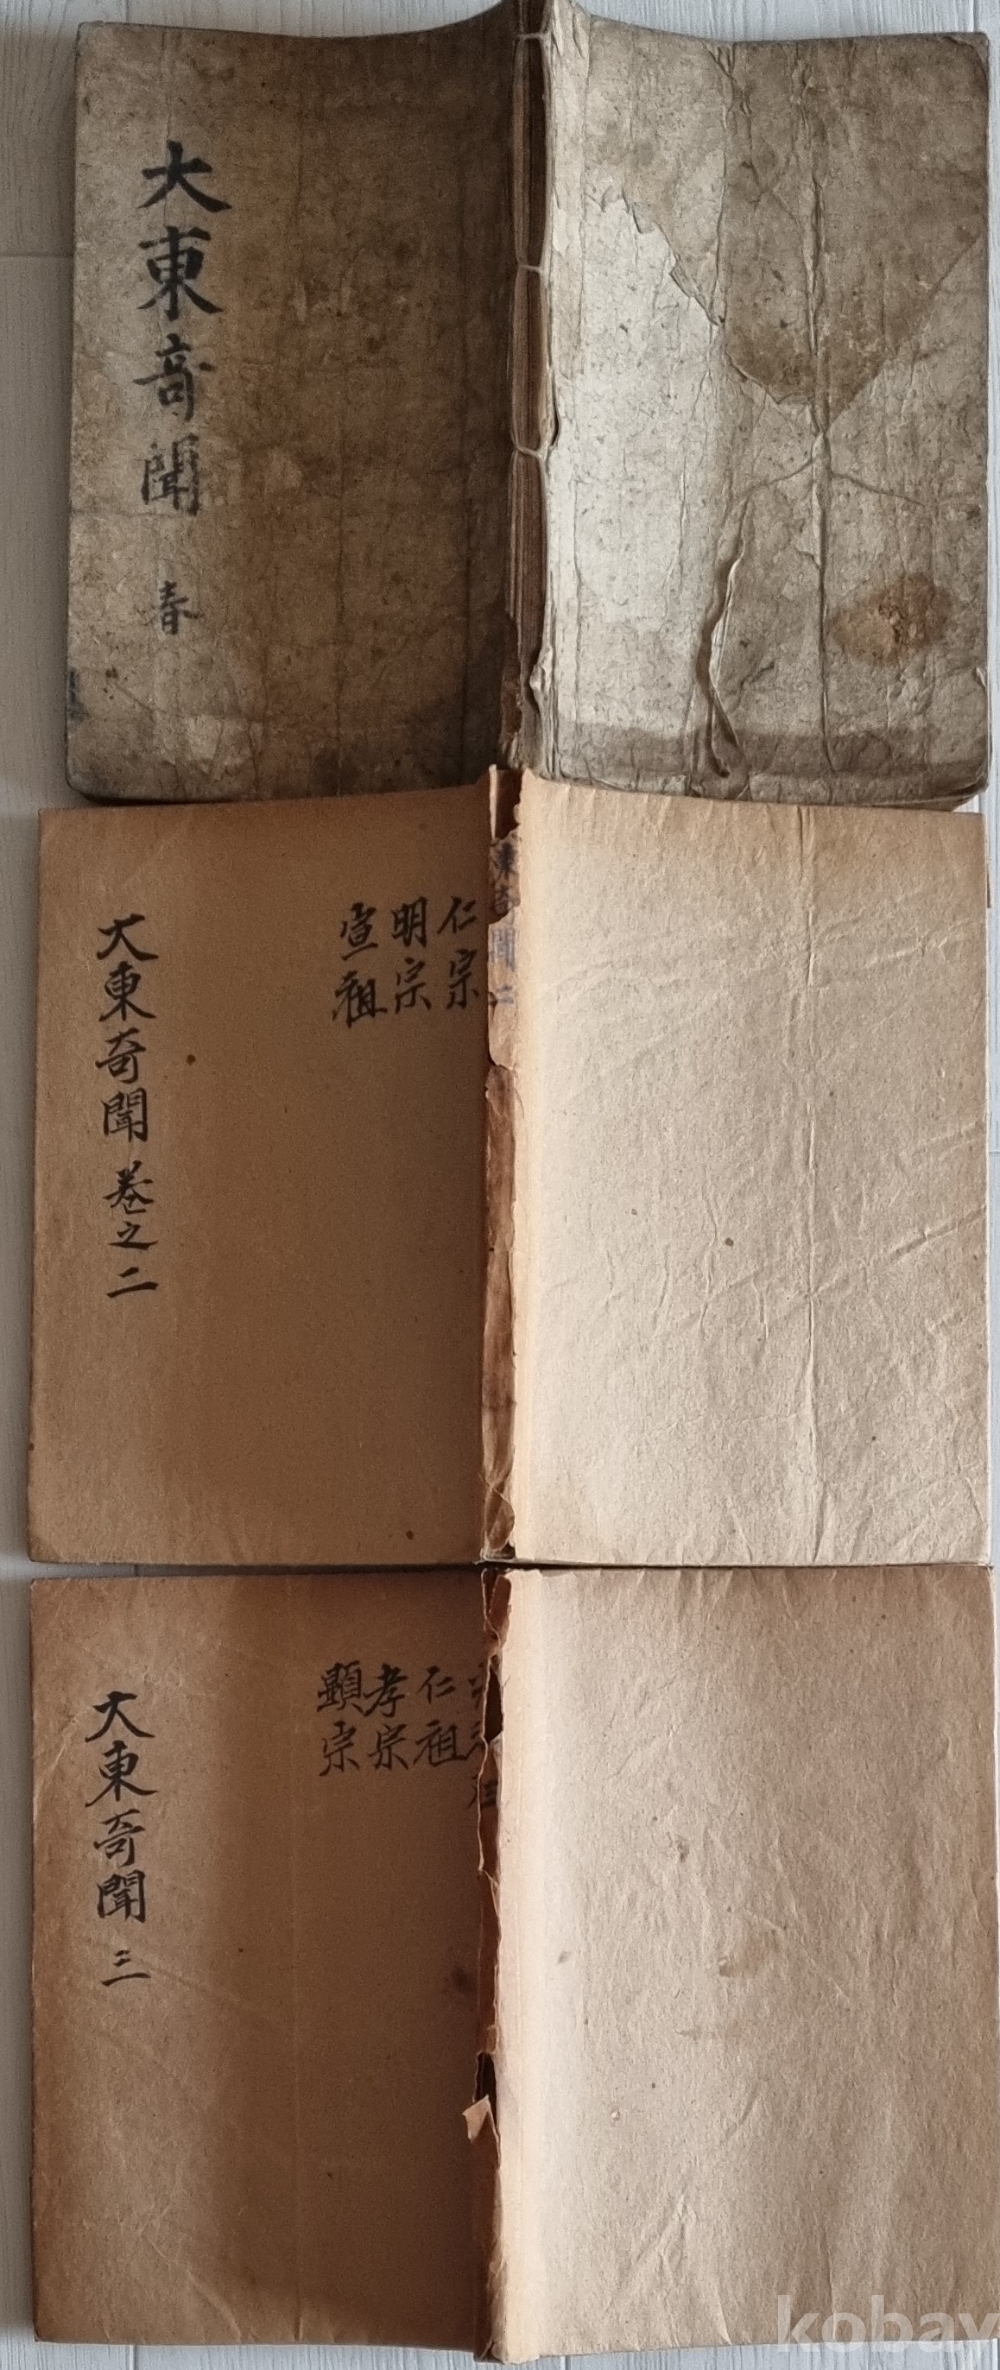 大東奇聞 春
仁宗
明宗
宣祖
大東奇聞 卷之二
東奇聞 二
仁祖
孝宗
顯宗
大東奇聞 三
kobay